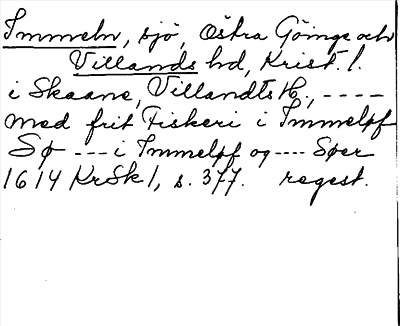 Immeln, sjö, Östra Göinge och
Villands hd, Krist. l.
i Skaane, Villandts H., ----
med frit Fiskeri i Immelpf
Sø --- i Immelpf og ---- Søer
1614 KrSk 1, s. 377. regest.